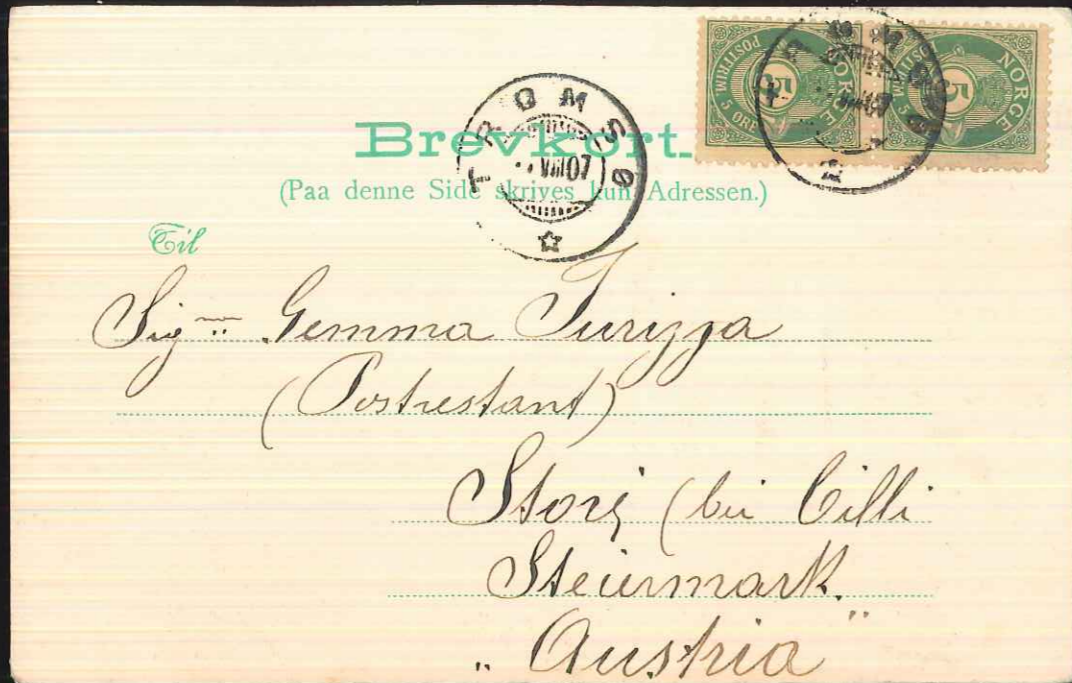 NORGE
POSTFRIM
5
5 ØRE
NORGE
POSTFRIM
5
5
TROMSØ
VIII 07
TROMSØ
Brevkort.
(Paa denne Side skrives kun Adressen.)
Til
Sig.na Gemma Turizza
(Postrestant)
Store (bei Cilli
Steiermark.
"Austria"